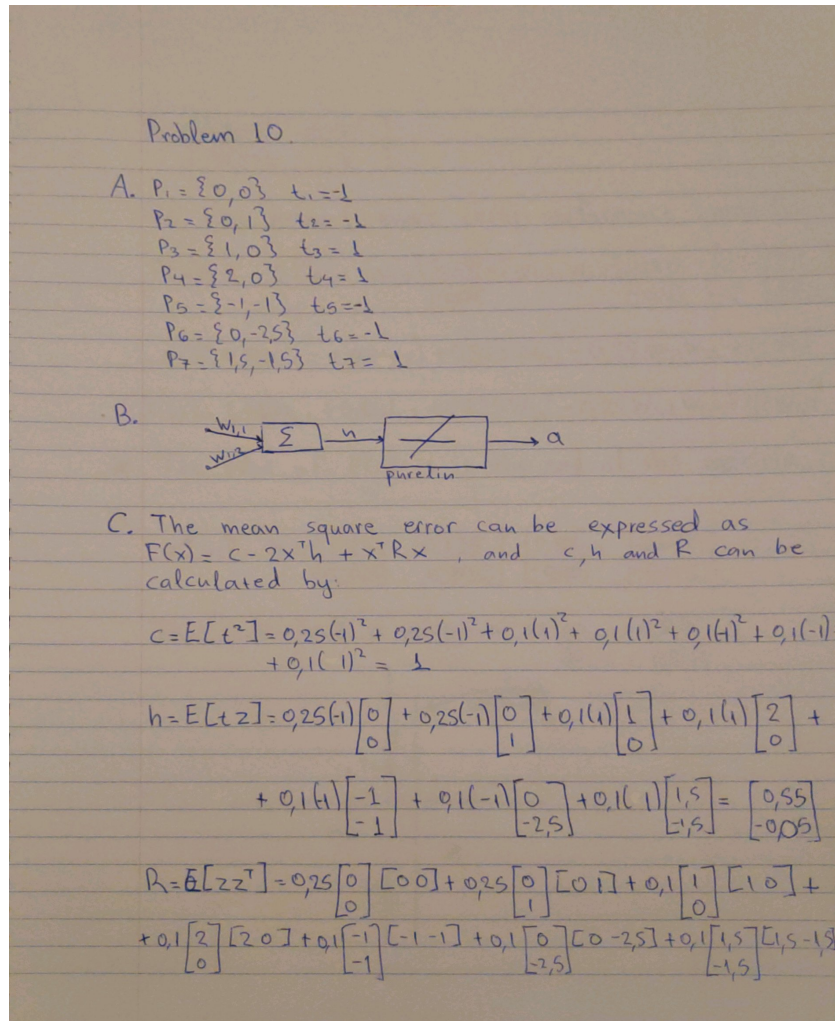 Problem 10.
A. P₁ = {0,0} t₁=-1
P₂ = {0,1} t₂=-1
P₃ = {1,0} t₃= 1
P₄ = {2,0} t₄= 1
P₅ = {-1,-1} t₅=-1
P₆ = {0,-2,5} t₆=-1
P₇ = {1,5,-1,5} t₇= 1
B. W₁,₁ Σ n a
W₁,₂
purelin
C. The mean square error can be expressed as
F(x) = c - 2xᵀh + xᵀRx , and c,h and R can be
calculated by:
c=E[t²]=0,25(-1)² + 0,25(-1)² + 0,1(1)² + 0,1(1)² + 0,1(-1)² + 0,1(-1)
+ 0,1( 1)² = 1
h=E[tz]=0,25(-1)[0 0] + 0,25(-1)[0 1] + 0,1(1)[1 0] + 0,1(1)[2 0] +
+ 0,1(-1)[-1 -1] + 0,1(-1)[0 -2,5] + 0,1( 1)[1,5 -1,5] = [0,55 -0,05]
R=E[zzᵀ]=0,25[0 0][0 0] + 0,25[0 1][0 1] + 0,1[1 0][1 0] +
+ 0,1[2 0][2 0] + 0,1[-1 -1][-1 -1] + 0,1[0 -2,5][0 -2,5] + 0,1[1,5 -1,5][1,5 -1,5